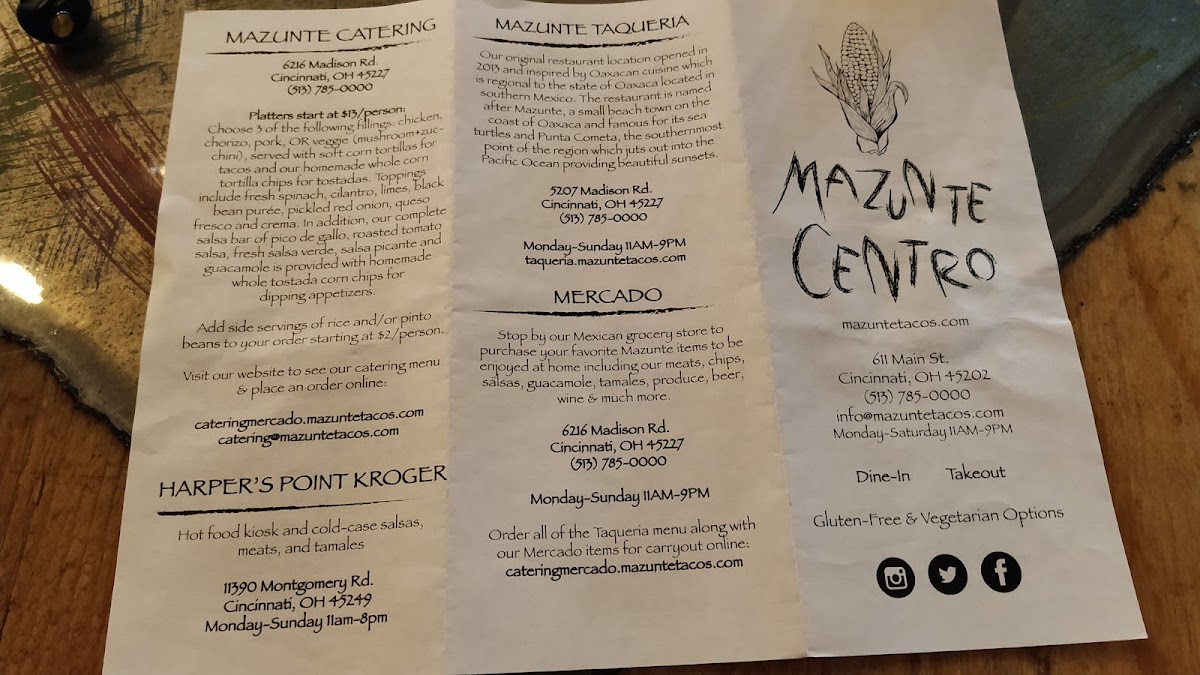 MAZUNTE CATERING
6216 Madison Rd.
Cincinnati, OH 45227
(513) 785-0000
Platters start at $13/person:
Choose 3 of the following fillings: chicken,
chorizo, pork, OR veggie (mushroom+zuc-
chini), served with soft corn tortillas for
tacos and our homemade whole corn
tortilla chips for tostadas. Toppings
include fresh spinach, cilantro, limes, black
bean purée, pickled red onion, queso
fresco and crema. In addition, our complete
salsa bar of pico de gallo, roasted tomato
salsa, fresh salsa verde, salsa picante and
guacamole is provided with homemade
whole tostada corn chips for
dipping appetizers.
Add side servings of rice and/or pinto
beans to your order starting at $2/person.
Visit our website to see our catering menu
& place an order online:
cateringmercado.mazuntetacos.com
catering@mazuntetacos.com
HARPER'S POINT KROGER
Hot food kiosk and cold-case salsas,
meats, and tamales
11390 Montgomery Rd.
Cincinnati, OH 45249
Monday-Sunday 11am-8pm
MAZUNTE TAQUERIA
Our original restaurant location opened in
2013 and inspired by Oaxacan cuisine which
is regional to the state of Oaxaca located in
southern Mexico. The restaurant is named
after Mazunte, a small beach town on the
coast of Oaxaca and famous for its sea
turtles and Punta Cometa, the southernmost
point of the region which juts out into the
Pacific Ocean providing beautiful sunsets.
5207 Madison Rd.
Cincinnati, OH 45227
(513) 785-0000
Monday-Sunday 11AM-9PM
taqueria.mazuntetacos.com
MERCADO
Stop by our Mexican grocery store to
purchase your favorite Mazunte items to be
enjoyed at home including our meats, chips,
salsas, guacamole, tamales, produce, beer,
wine & much more.
6216 Madison Rd.
Cincinnati, OH 45227
(513) 785-0000
Monday-Sunday 11AM-9PM
Order all of the Taqueria menu along with
our Mercado items for carryout online:
cateringmercado.mazuntetacos.com
MAZUNTE
CENTRO
mazuntetacos.com
611 Main St.
Cincinnati, OH 45202
(513) 785-0000
info@mazuntetacos.com
Monday-Saturday 11AM-9PM
Dine-In Takeout
Gluten-Free & Vegetarian Options